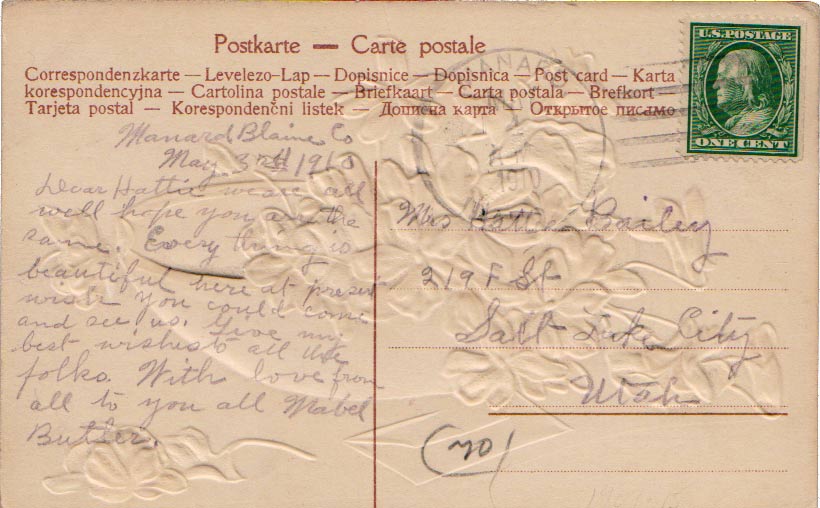 Postkarte — Carte postale
Correspondenzkarte — Levelezo-Lap — Dopisnice — Dopisnica — Post card — Karta
korespondencyjna — Cartolina postale — Briefkaart — Carta postala — Brefkort —
Tarjeta postal — Korespondenční listek — Дописна карта — Открытое писмо
U.S. POSTAGE
ONE CENT
MANARD
1910
Manard Blaine Co
May. 3rd 1910
Dear Hattie we are all
well hope you are the
same. Every thing is
beautiful here at present
wish you could come
and see us. Give my
best wishes to all the
folks. With love from
all to you all Mabel
Butler.
Mrs Hattie Bailey
219 F St
Salt Lake City
Utah
(70)